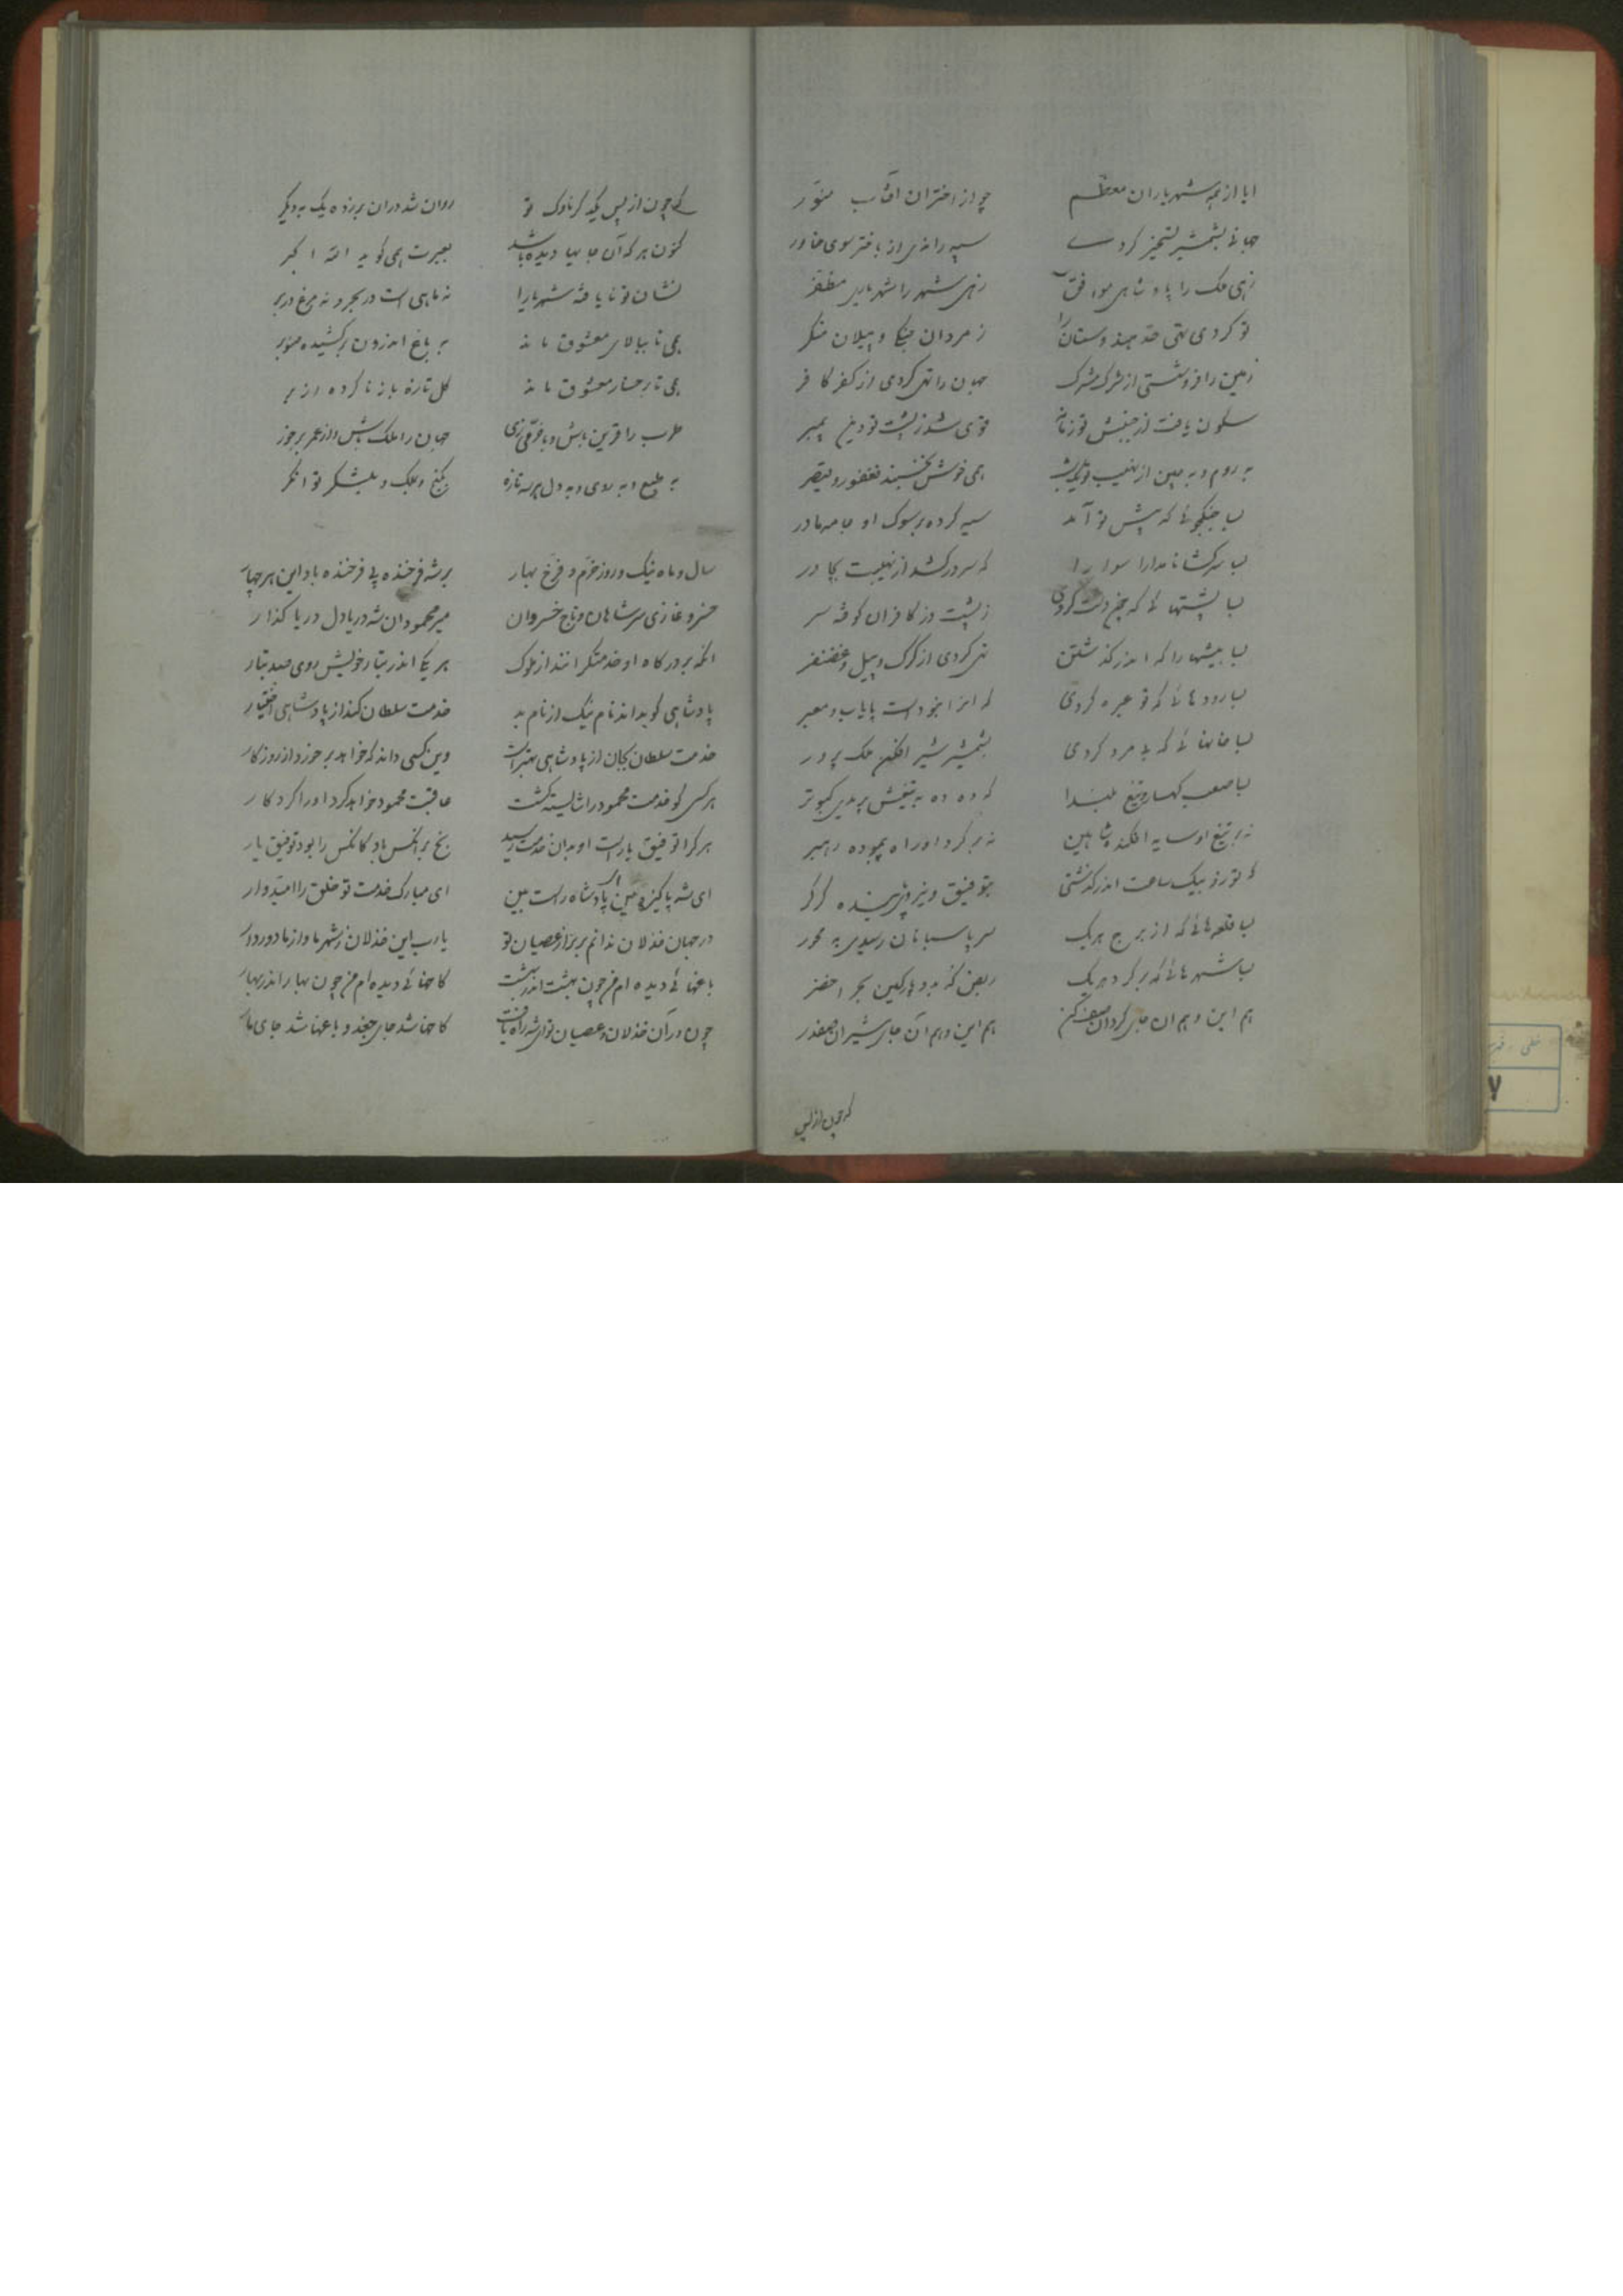 ایا از همه شهریاران معظم چو از اختران آفتاب منور
جهانی بشمشیر تسخیر کردے سپه راندی از باختر سوی خاور
زهی ملک را پادشاهی موافق زهی شهر را شهریاری مظفر
تو کردی تهی حد هندوستان را ز مردان جنگی و پیلان منکر
زمین را فروشستی از شرک مشرک جهان را تهی کردی از کفر کافر
سکون یافت از جنبش تو زمانه قوی شد ز پشت تو دین پیمبر
به روم و به چین از نهیب تو یکشب همی خوش نخسبند فغفور و قیصر
بسا جنگجوئی که پیش تو آمد سیه کرده بر سوک او جامه مادر
بسا سرکشا نامدارا سوارا که سر درکشد از نهیبت بچادر
بسا پشتهائی که دشت کردی ز پشت و ز کافران کوفته سر
بسا بیشها را که اندر گذشتن تهی کردی از کرگ و پیل و غضنفر
بسا رودهائی که تو عبره کردی که آنرا نبودست پایاب و معبر
بسا خانهائی که بی مرد کردی بشمشیر شیر افکن ملک پرور
بسا صعب کهسار و تیغ بلندا که ده ده به تیغش پریدی کبوتر
نه بر تیغ او سایه افکنده شاهین نه بر گرد او راه پیموده رهبر
که تو زو بیک ساعت اندر گذشتی بتوفیق و نیروی یزدان گرگر
بسا قلعه هائی که از برج هریک سر پاسبانان رسیدی به محور
بسا شهرهائی که بر گرد هریک ربض که بد و پارکین بحر اخضر
هم این و هم آن جای گردان صف کن هم این و هم آن جای شیران صفدر
که چون از پس
که چون از پس یکدگر ناوک تو روان شد در آن برزده یک به دیگر
کنون هر که آن جایها دیده باشد بعبرت همی گوید الله اکبر
نشان تو نایافته شهریارا نه ماهی است در بحر و نه مرغ در بر
همی تا ببالای معشوق ماند به باغ اندرون برکشیده صنوبر
همی تا برخسار معشوق ماند گل تازه باز ناکرده از بر
طرب را قرین باش و با خرمی زی جهان را ملک باش و از عمر برخور
به طبع و به روی و به دل هرسه تازه بگنج و بملک و بلشکر توانگر
سال و ماه نیک و روز خرم و فرخ بهار بر شه فرخنده پی فرخنده باد این هر چهار
خسرو غازی سر شاهان و تاج خسروان میر محمود آن شه دریا دل دریا گذار
آنکه بر درگاه او خدمتگرانند از ملوک هر یکی اندر تبار خویش روی صد تبار
پادشاهی کو بداند نام نیک از نام بد خدمت سلطان کند از پادشاهی اختیار
خدمت سلطان بجان از پادشاهی بهتر است وین کسی داند که خواهد بر خورد از روزگار
هر کسی کو خدمت محمود را شایسته گشت عاقبت محمود خواهد کرد او را کردگار
هر کرا توفیق یارست او بدان خدمت رسید بخ بخ آنکس باد کانکس را بود توفیق یار
ای شه پاکیزه دین ای پادشاه راست بین ای مبارک خدمت تو خلق را امیدوار
در جهان خذلان ندانم برتر از عصیان تو یارب این خذلان ز شهر ما و از ما دور دار
باغهائی دیده ام من چون بهشت اندر بهشت کاخهائی دیده ام من چون بهار اندر بهار
چون در آن خذلان و عصیان تو ای شه راه یافت کاخها شد جای جغد و باغها شد جای مار